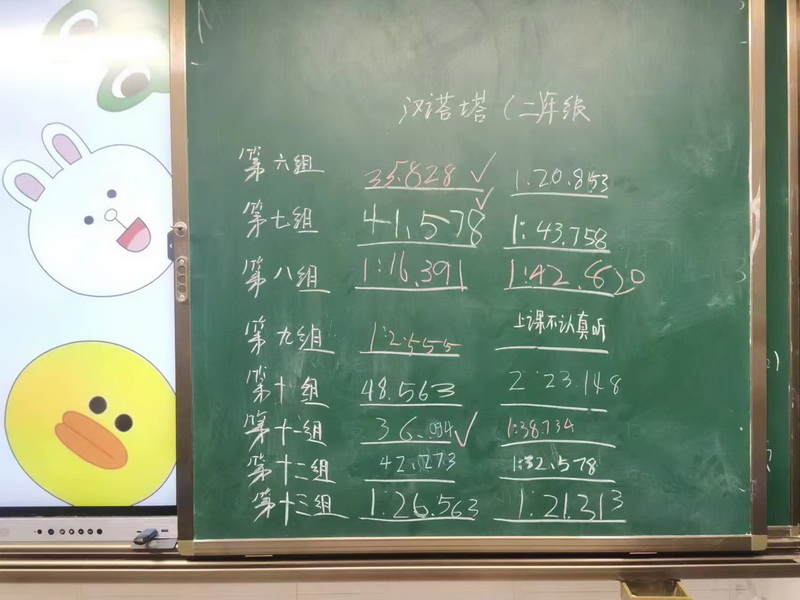 汉诺塔（二年级
第六组 35.828 ✓ 1.20.853
第七组 41.578 ✓ 1:43.758
第八组 1:16.391 1:42.820
第九组 1:2.555 上课不认真听
第十组 48.563 2:23.148
第十一组 36.094 ✓ 1:38.734
第十二组 42.273 1:32.578
第十三组 1:26.563 1:21.313